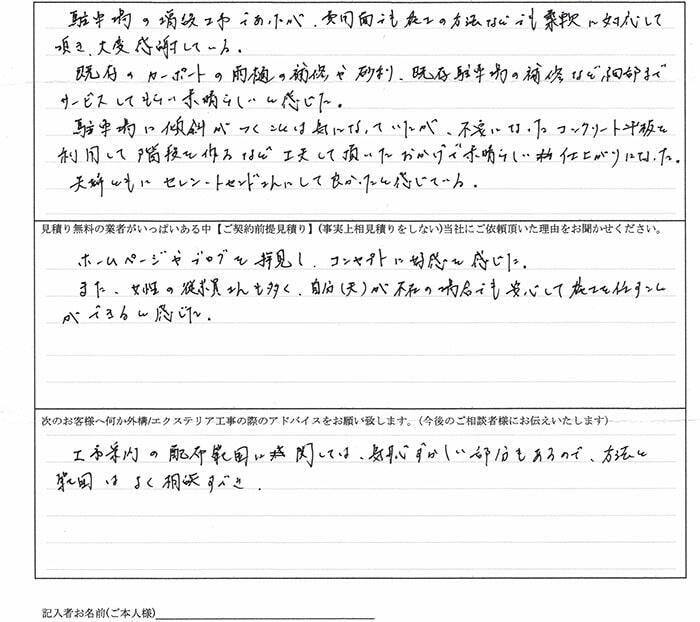 駐車場の増設工事であったが、費用面でも施工の方法などでも柔軟に対応して
頂き、大変感謝している。
既存のカーポートの雨樋の補修や砂利、既存駐車場の補修など細部まで
サービスしてもらい素晴らしいと感じた。
駐車場に傾斜がつくことは気になっていたが、不要になったコンクリート平板を
利用して階段を作るなど工夫して頂いたおかげで素晴らしい仕上がりになった。
夫婦ともにセレン・トセンドさんにして良かったと感じている。
見積り無料の業者がいっぱいある中【ご契約前提見積り】(事実上相見積りをしない)当社にご依頼頂いた理由をお聞かせください。
ホームページやブログを拝見し、コンセプトに好感を感じた。
また、女性の従業員さんも多く、自分(夫)が不在の場合でも安心して施工を任すこと
ができると感じた。
次のお客様へ何か外構/エクステリア工事の際のアドバイスをお願い致します。(今後のご相談者様にお伝えいたします)
工事案内の配布範囲に関しては、気恥ずかしい部分もあるので、方法と
範囲はよく相談すべき.
記入者お名前(ご本人様)